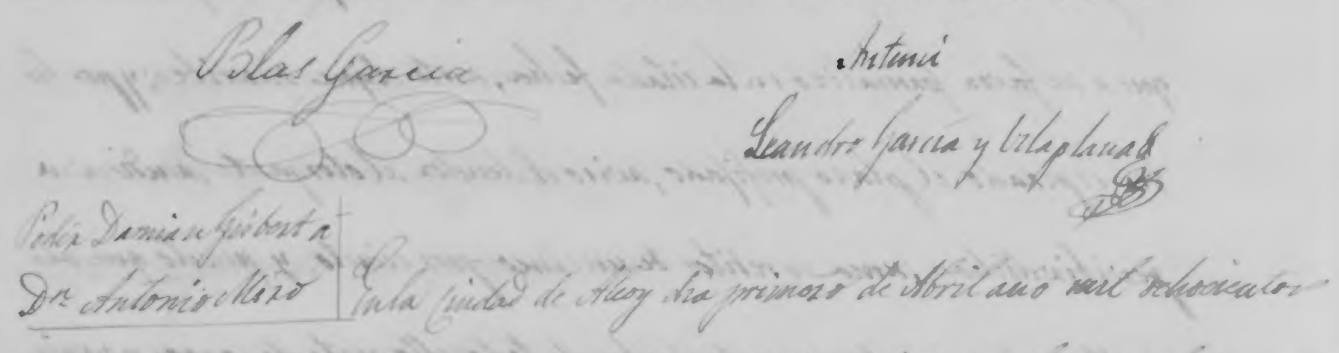 Blas Garcia
Antemi
Leandro García y Vilaplana
Poder Damian Gisbert a
Dn Antonio Miro
En la Ciudad de Alcoy dia primero de Abril año mil ochocientos